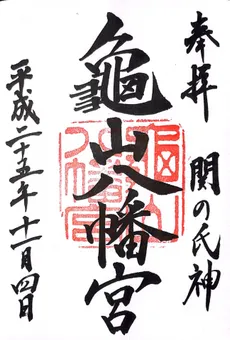 奉拝
関の氏神
龜山八幡宮
平成二十五年十一月四日